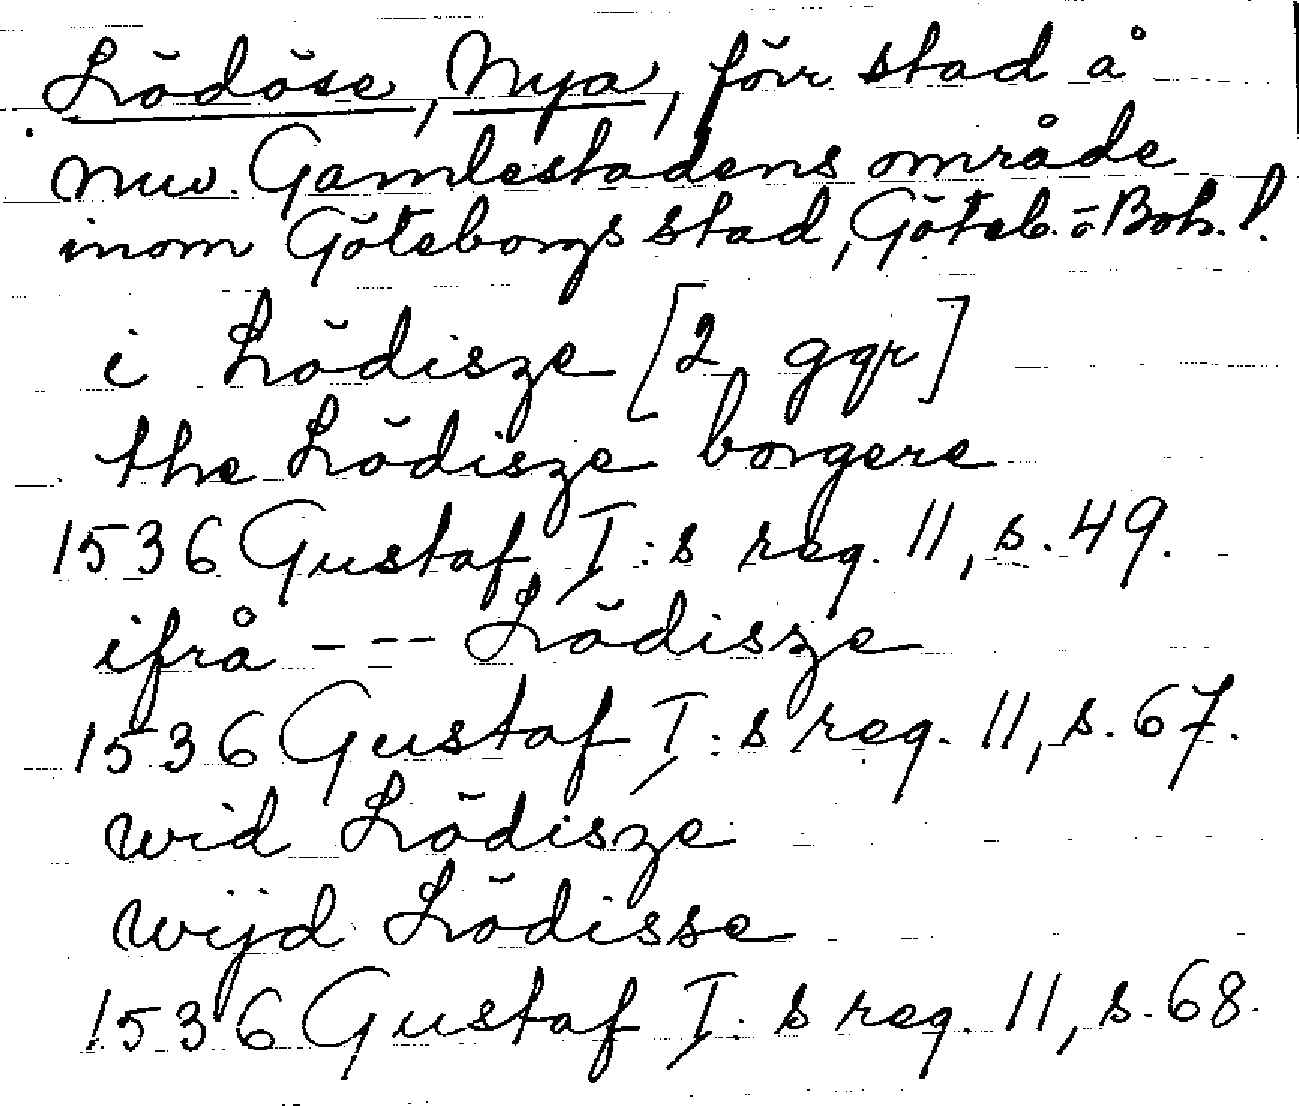 Lödöse, Nya, förr stad å
nuv. Gamlestadens område
inom Göteborgs stad, Göteb. o Boh. l.
i Lödisze [2 ggr]
the Lödisze borgere
1536 Gustaf I:s reg. 11, s. 49.
ifrå --- Lödisze
1536 Gustaf I:s reg. 11, s. 67.
wid Lödisze
wijd Lödisse
1536 Gustaf I:s reg. 11, s. 68.